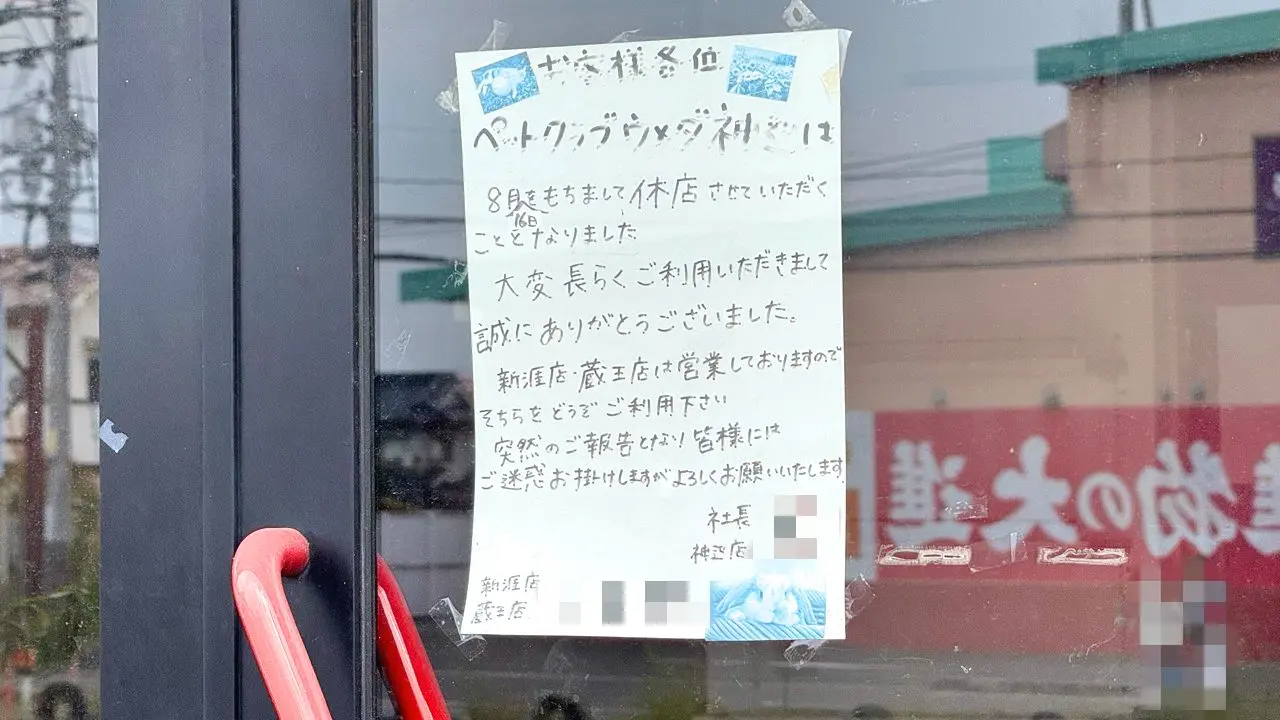 お客様各位
ペットクラブウメダ神辺は
8月をもちまして休店させていただく
16日
こととなりました
大変長らくご利用いただきまして
誠にありがとうございました。
新涯店・蔵王店は営業しておりますので
そちらをどうぞご利用下さい
突然のご報告となり皆様には
ご迷惑お掛けしますがよろしくお願いいたします
社長
神辺店
新涯店
蔵王店
物の大進